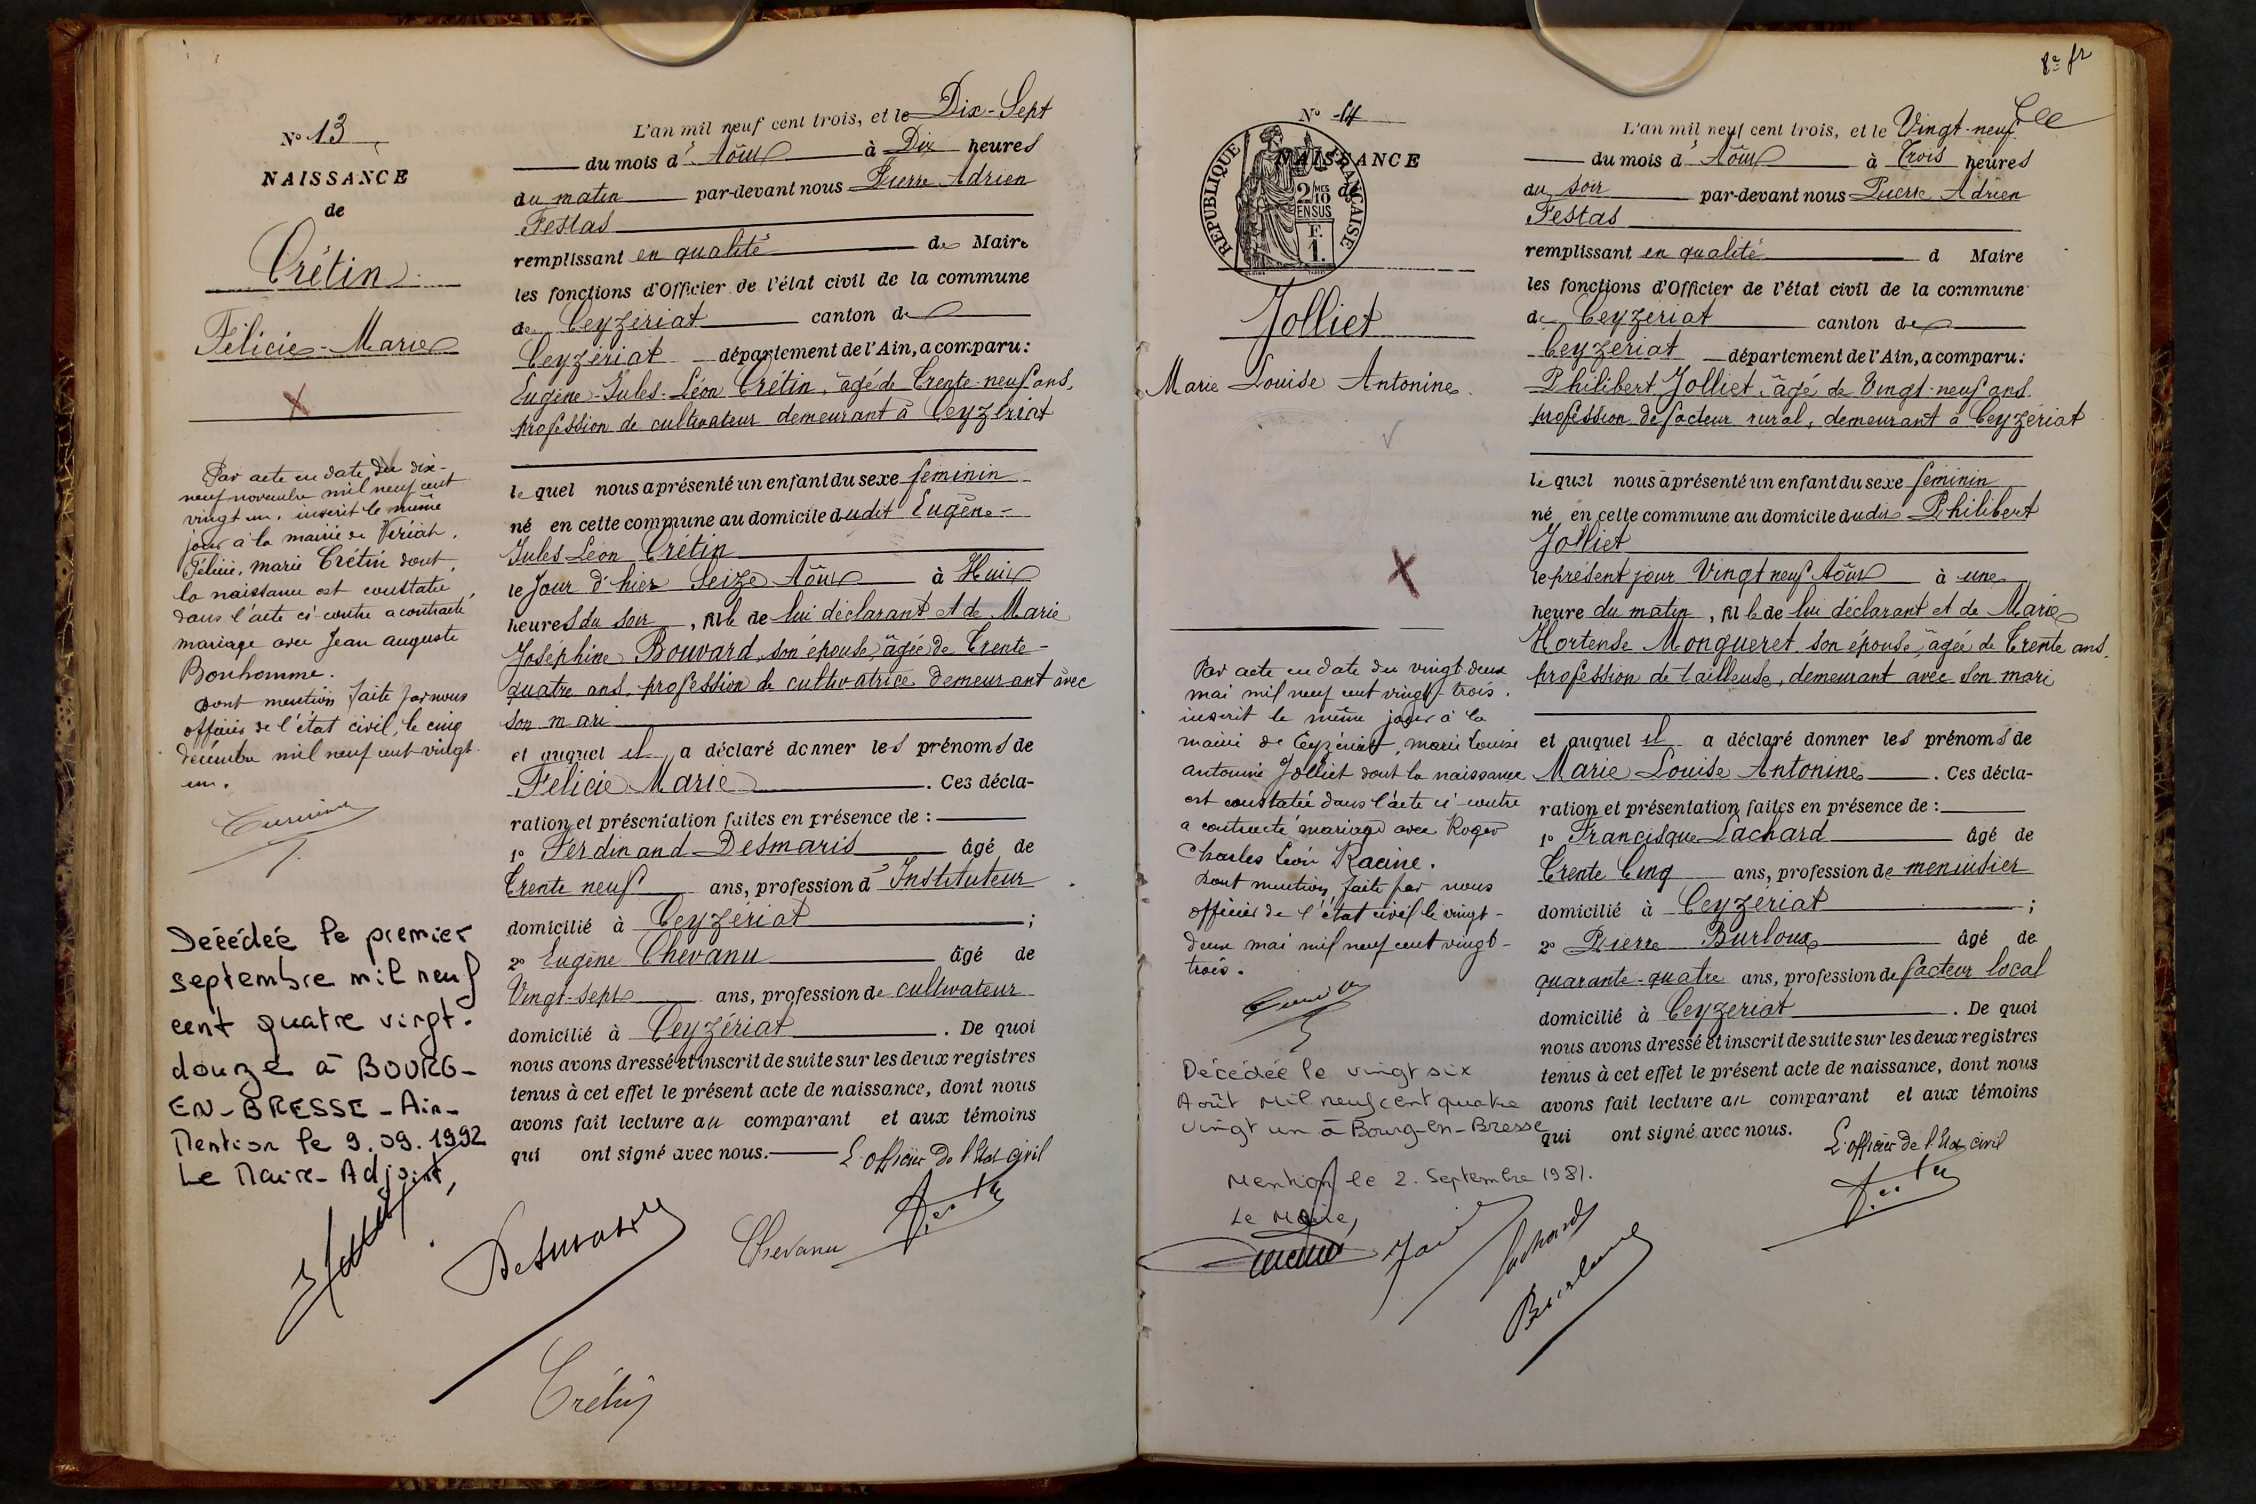 N° 13
NAISSANCE
de
Crétin
Félicie-Marie
Par acte en date du dix-
neuf novembre mil neuf cent
vingt un, inscrit le même
jour à la mairie de Viriat,
Félicie, Marie Crétin dont
la naissance est constatée
dans l'acte ci-contre a contracté
mariage avec Jean Auguste
Bonhomme.
Dont mention faite par nous
officier de l'état civil, le cinq
décembre mil neuf cent vingt
un.
Décédée le premier
septembre mil neuf
cent quatre vingt-
douze à BOURG-
EN-BRESSE-Ain-
Mention le 9.09.1992
Le Maire-Adjoint,
L'an mil neuf cent trois, et le Dix-Sept
du mois d'Août à Dix heures
du matin par-devant nous Pierre Adrien
Festas
remplissant en qualité de Maire
les fonctions d'Officier de l'état civil de la commune
de Ceyzériat canton de
Ceyzériat département de l'Ain, a comparu:
Eugène-Jules-Léon Crétin, âgé de Trente-neuf ans,
profession de cultivateur demeurant à Ceyzériat
le quel nous a présenté un enfant du sexe féminin
né en cette commune au domicile dudit Eugène-
Jules Léon Crétin
le Jour d'hier Seize Août à Huit
heures du soir, fille de lui déclarant et de Marie
Joséphine Bouvard, son épouse, âgée de Trente-
quatre ans, profession de cultivatrice demeurant avec
son mari
et auquel il a déclaré donner les prénoms de
Félicie Marie. Ces décla-
ration et présentation faites en présence de :
1° Ferdinand Desmaris âgé de
Trente neuf ans, profession d'Instituteur
domicilié à Ceyzériat ;
2° Eugène Chevanu âgé de
Vingt-sept ans, profession de cultivateur
domicilié à Ceyzériat. De quoi
nous avons dressé et inscrit de suite sur les deux registres
tenus à cet effet le présent acte de naissance, dont nous
avons fait lecture au comparant et aux témoins
qui ont signé avec nous. L'officier de l'État civil
Desmaris
Chevanu
Crétin
N° 14
NAISSANCE
de
REPUBLIQUE FRANÇAISE
2/10 MES
EN SUS
F.
1.
Jolliet
Marie Louise Antonine
Par acte en date du vingt-deux
mai mil neuf cent vingt-trois,
inscrit le même jour à la
mairie de Ceyzériat, Marie Louise
Antonine Jolliet dont la naissance
est constatée dans l'acte ci-contre
a contracté mariage avec Roger
Charles Léon Racine.
Dont mention faite par nous
officier de l'état civil le vingt-
deux mai mil neuf cent vingt-
trois.
Décédée le vingt six
Août mil neuf cent quatre
vingt un à Bourg-en-Bresse
Mention le 2. Septembre 1981.
Le Maire,
L'an mil neuf cent trois, et le Vingt-neuf
du mois d'Août à Trois heures
du soir par-devant nous Pierre Adrien
Festas
remplissant en qualité d Maire
les fonctions d'Officier de l'état civil de la commune
de Ceyzeriat canton de
Ceyzeriat département de l'Ain, a comparu:
Philibert Jolliet, âgé de Vingt-neuf ans
profession de facteur rural, demeurant à Ceyzériat
le quel nous a présenté un enfant du sexe féminin
né en cette commune au domicile dudit Philibert
Jolliet
le présent jour Vingt neuf Août à une
heure du matin, fille de lui déclarant et de Marie
Hortense Mongueret son épouse, âgée de Trente ans,
profession de tailleuse, demeurant avec son mari
et auquel il a déclaré donner les prénoms de
Marie Louise Antonine. Ces décla-
ration et présentation faites en présence de :
1° Francisque Lachard âgé de
Trente Cinq ans, profession de menuisier
domicilié à Ceyzériat ;
2° Pierre Burloux âgé de
quarante-quatre ans, profession de facteur local
domicilié à Ceyzeriat. De quoi
nous avons dressé et inscrit de suite sur les deux registres
tenus à cet effet le présent acte de naissance, dont nous
avons fait lecture au comparant et aux témoins
qui ont signé avec nous. L'officier de l'État civil
Lachard
Burloux